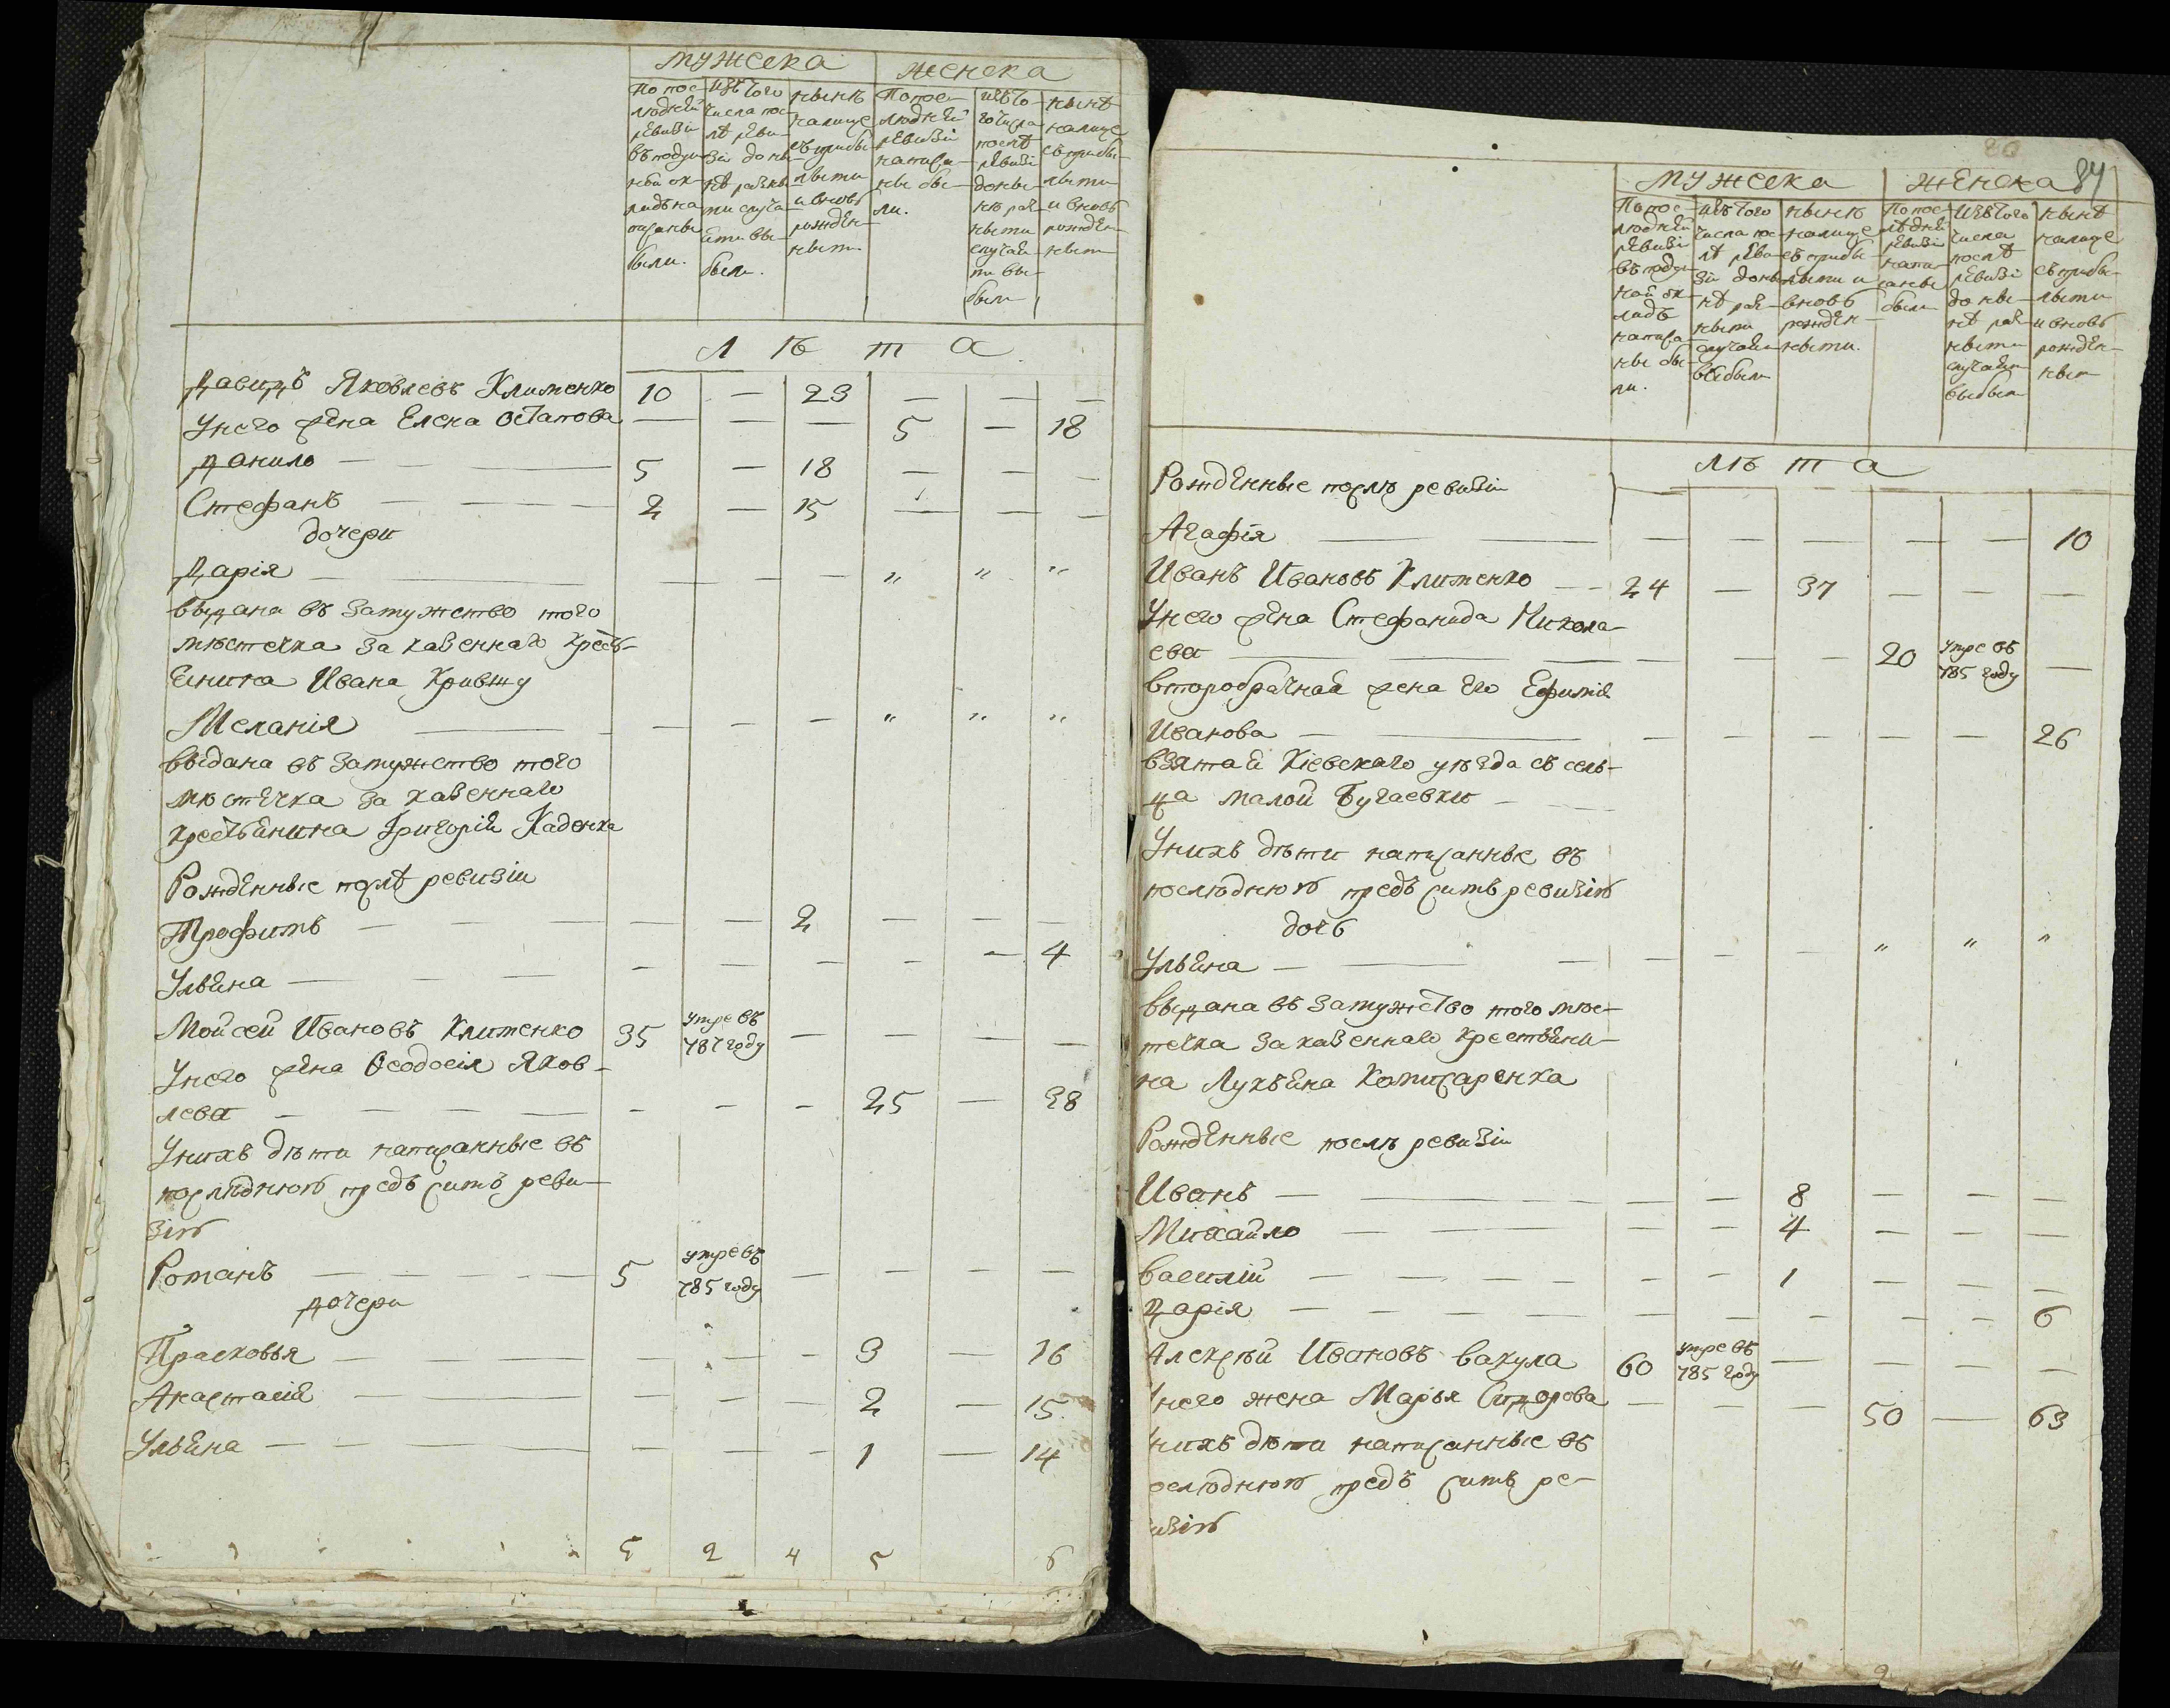 мужеска женска
По пос-
людней
ревизiи
въ подуш-
ной ок-
ладъ на
писаны
были.
Изъ того
числа пос-
лѣ реви-
зiи до ны-
нѣ разны-
ми случа-
ями вы-
было.
нынѣ
налице
съ прибы-
лыми
и вновь
рожден-
ными
По пос-
людней
ревизiи
написа-
ны бы-
ли.
Изъ то-
го числа
послѣ
ревизiи
до ны-
нѣ раз-
ными
случая-
ми вы-
было
нынѣ
налице
съ прибы-
лыми
и вновь
рожден-
ными
лѣта
Давидъ Яковлевъ Клименко 10 — 23 — — —
У него жена Елена Остапова — — — 5 — 18
Данило — 5 — 18 — — —
Стефанъ — 2 — 15 — — —
дочери
Дарiя — — — — " " "
выдана въ замужство того
мѣстечка за казеннаго кресть-
янина Ивана Крившу
Меланiя — — — — " " "
выдана въ замужство того
мѣстечка за казеннаго
крестьянина Григорiя Каденка
Рожденные послѣ ревизiи
Трофимъ — — — 2 — — —
Ульяна — — — — — — 4
Мойсей Ивановъ Клименко 35 умре въ 787 году — — — —
У него жена Феодосiя Яков-
лева — — — — 25 — 38
У нихъ дѣти написанные въ
послѣднюю предъ симъ реви-
зiю
Романъ — 5 умре въ 785 году — — — —
дочери
Прасковья — — — — 3 — 16
Анастасiя — — — — 2 — 15
Ульяна — — — — 1 — 14
5 2 4 5 6
80
84
мужеска женска
По пос-
людней
ревизiи
въ подуш-
ной ок-
ладъ
написа-
ны бы-
ли.
изъ того
числа пос-
лѣ реви-
зiи до ны-
нѣ раз-
ными
случаями
выбыло
нынѣ
налице
съ прибы-
лыми и
вновь
рожден-
ными.
По пос-
лѣдней
ревизiи
напи-
саны
были
Изъ того
числа
послѣ
ревизiи
до ны-
нѣ раз-
ными
случаями
выбыло
нынѣ
налице
съ прибы-
лыми
и вновь
рожден-
ными
лѣта
Рожденные послѣ ревизiи
Агафiя — — — — — — 10
Иванъ Ивановъ Клименко — 24 — 37 — — —
У него жена Стефанида Никола-
ева — — — — 20 умре въ 785 году —
второбрачная жена его Ефимiя
Иванова — — — — — — 26
взятая Кiевскаго уѣзда съ сель-
ца Малой Бугаевки —
У нихъ дѣти написанные въ
послюднюю предъ симъ ревизiю
дочь
Ульяна — — — — " " "
выдана въ замужство того мѣс-
течка за казеннаго крестьяни-
на Лукьяна Комисаренка
Рожденные послѣ ревизiи
Иванъ — — — 8 — — —
Михайло — — — 4 — — —
Василiй — — — 1 — — —
Дарiя — — — — — — 6
Алексѣй Ивановъ Вакула 60 умре въ 785 году — — — —
него жена Марья Сидорова — — — 50 — 63
нихъ дѣти написанные въ
ослюднюю предъ симъ ре-
изiю
4 2